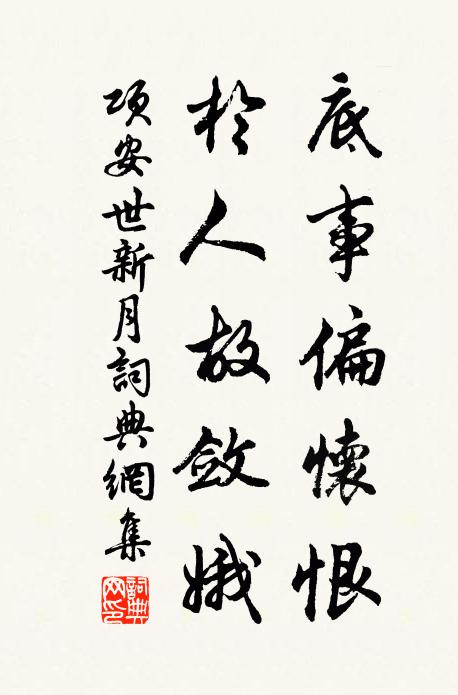 底事偏懷恨
於人故斂娥
項安世新月詞典網集
詞典網印